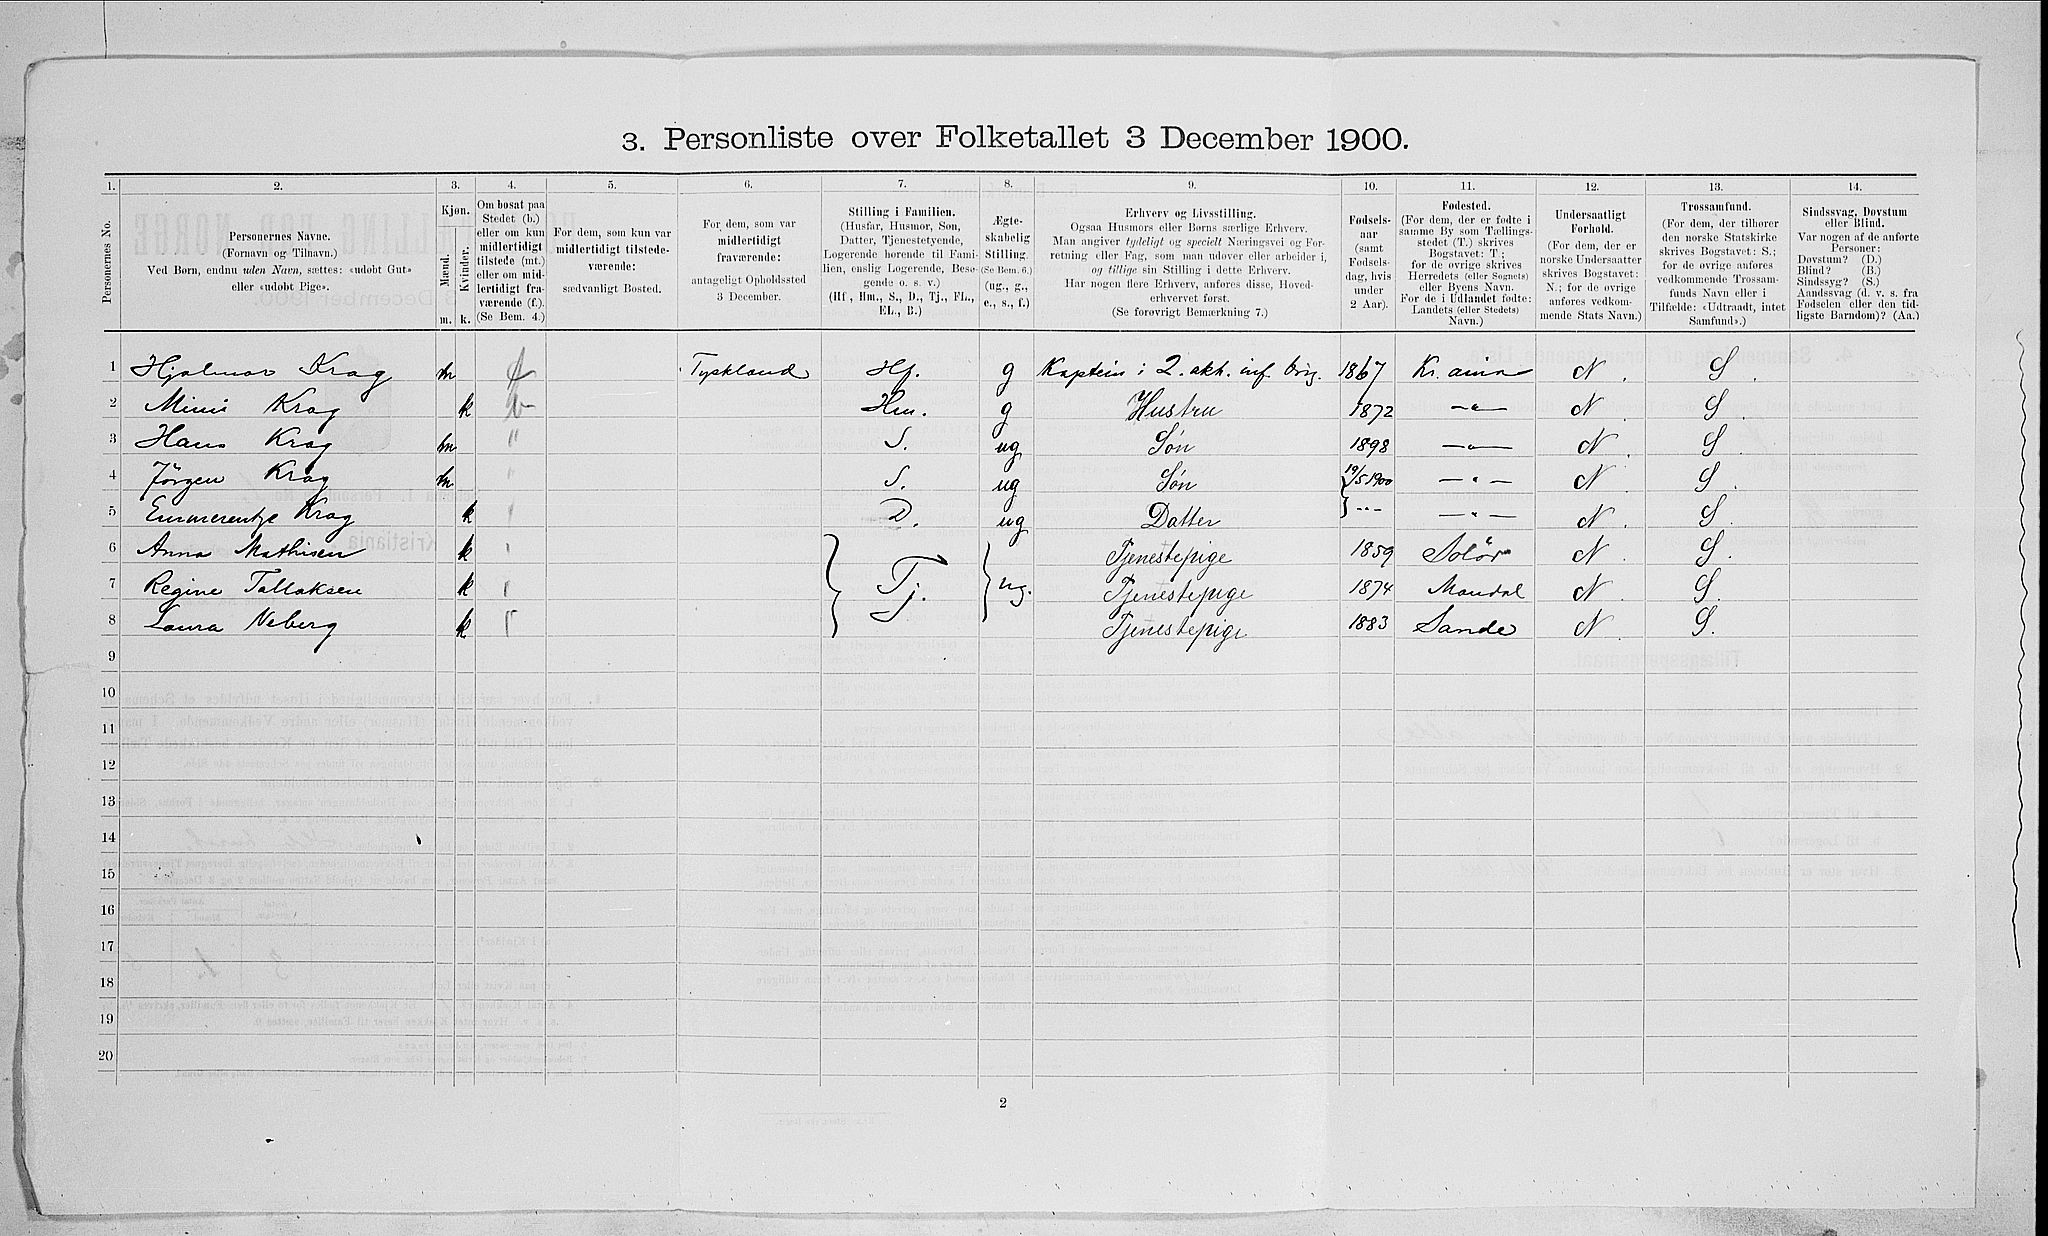 3. Personliste over Folketallet 3 December 1900.
1. 2. 3. 4. 5. 6. 7. 8. 9. 10. 11. 12. 13. 14.
Personernes No.
Personernes Navne.
(Fornavn og Tilnavn.)
Ved Børn, endnu uden Navn, sættes: «udøbt Gut»
eller «udøbt Pige».
Kjøn.
Mænd. Kvinder.
m. k.
Om bosat paa
Stedet (b.)
eller om kun
midlertidigt
tilstede (mt.)
eller om mid-
lertidigt fra-
værende (f.).
(Se Bem. 4.)
For dem, som kun var
midlertidigt tilstede-
værende:
sædvanligt Bosted.
For dem, som var
midlertidigt
fraværende:
antageligt Opholdssted
3 December.
Stilling i Familien.
(Husfar, Husmor, Søn,
Datter, Tjenestetyende,
Logerende hørende til Fami-
lien, enslig Logerende, Besø-
gende o. s. v.)
(Hf., Hm., S., D., Tj., FL.,
EL., B.)
Ægte-
skabelig
Stilling.
(Se Bem. 6.)
(ug., g.,
e., s., f.)
Erhverv og Livsstilling.
Ogsaa Husmors eller Børns særlige Erhverv.
Man angiver tydeligt og specielt Næringsvei og For-
retning eller Fag, som man udøver eller arbeider i,
og tillige sin Stilling i dette Erhverv.
Har nogen flere Erhverv, anføres disse, Hoved-
erhvervet først.
(Se forøvrigt Bemærkning 7.)
Fødsels-
aar
(samt
Fødsels-
dag, hvis
under
2 Aar).
Fødested.
(For dem, der er fødte i
samme By som Tællings-
stedet (T.) skrives
Bogstavet: T.;
for de øvrige skrives
Herredets (eller Sognets)
eller Byens Navn.
For de i Udlandet fødte:
Landets (eller Stedets)
Navn.)
Undersaatligt
Forhold.
(For dem, der er
norske Undersaatter
skrives Bogstavet:
N.; for de øvrige
anføres vedkom-
mende Stats Navn.)
Trossamfund.
(For dem, der tilhører
den norske Statskirke
skrives Bogstavet: S.;
for de øvrige anføres
vedkommende Trossam-
funds Navn eller i
Tilfælde: «Udtraadt, intet
Samfund».)
Sindssvag, Døvstum
eller Blind.
Var nogen af de anførte
Personer:
Døvstum? (D.)
Blind? (B.)
Sindssyg? (S.)
Aandssvag (d. v. s. fra
Fødselen eller den tid-
ligste Barndom)? (Aa.)
1 Hjalmar Krag m f Tyskland Hf. g Kaptein i 2. akh. inf. brig. 1867 Kr.ania N. S.
2 Mimi Krag k b Hm. g Hustru 1872 —"— N. S.
3 Hans Krag m " S. ug Søn 1898 —"— N. S.
4 Jörgen Krag m " S. ug Søn 19/5 1900 —"— N. S.
5 Emmerentze Krag k " D. ug Datter —"— —"— N. S.
6 Anna Mathisen k " Tj. ug. Tjenestepige 1859 Solör N. S.
7 Regine Tallaksen k " Tjenestepige 1874 Mandal N. S.
8 Laura Neberg k " Tjenestepige 1883 Sande N. S.
9
10
11
12
13
14
15
16
17
18
19
20
2